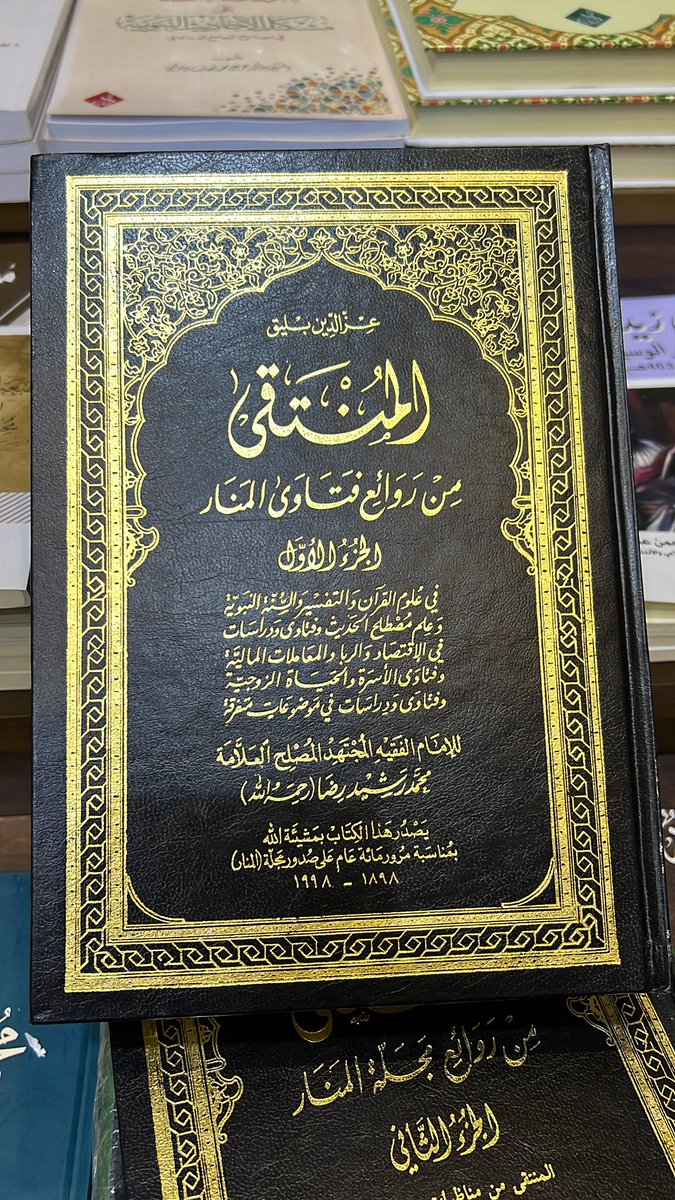 مشكل الأحاديث النبوية
عز الدين بليق
المُنْتَقى
مِنْ رَوَائِع فتَاوَى المَنَار
الجُزءُ الأوّل
في عُلوم القرآن والتفسير والسُّنة النبويّة
وَعِلم مُصْطلح الحَديث وفتاوى ودراسَات
في الاقتصاد والربا والمعَاملات الماليَّة
وفتاوى الأسرة والحيَاة الزوجيَّة
وفتاوى ودراسَات في مَوضوعَات متفرقة
للإمَام الفَقيه المُجتهد المُصْلح العَلاّمَة
محمّد رَشيد رضَا (رحمه الله)
يَصْدر هَذا الكتاب بمَشيئة الله
بمُناسَبة مرُور مائة عَام عَلى صُدور مجلة (المنار)
١٨٩٨ - ١٩٩٨
مِنْ رَوَائِع مجَلّة المنَار
الجُزءُ الثَّاني
المنتقى من مناظرات
زيد
الوس
463هـ